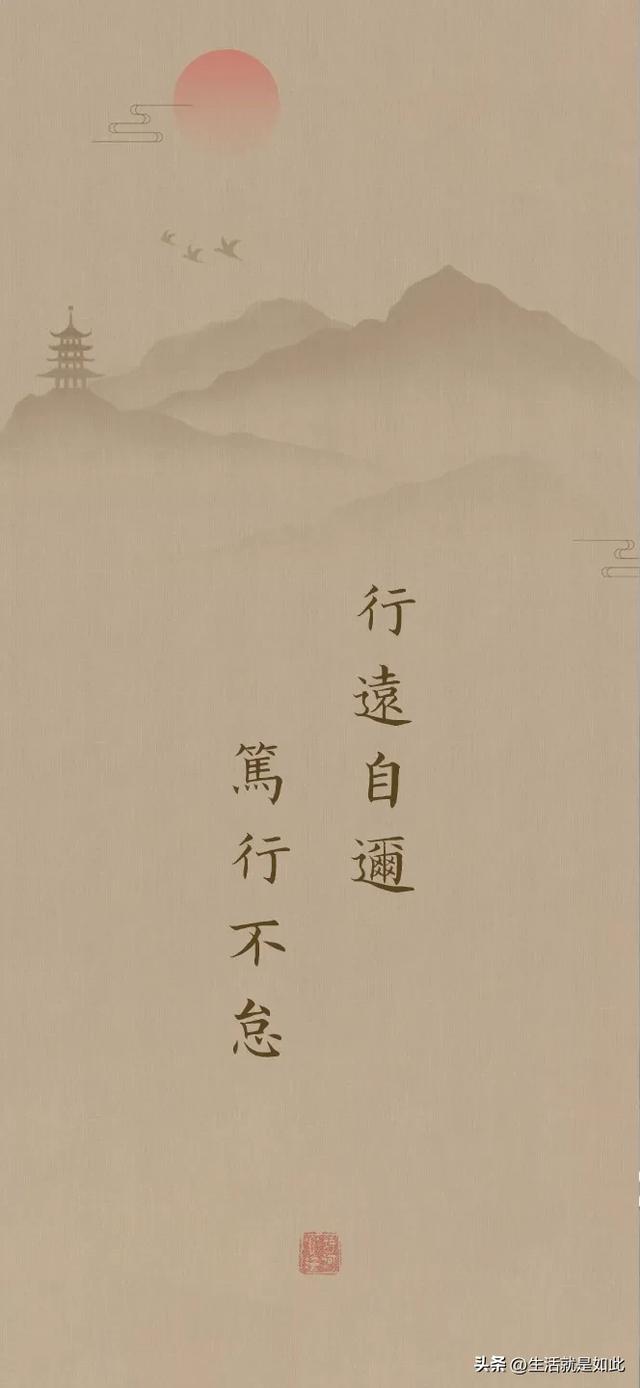 行遠自邇
篤行不怠
头条 @生活就是如此